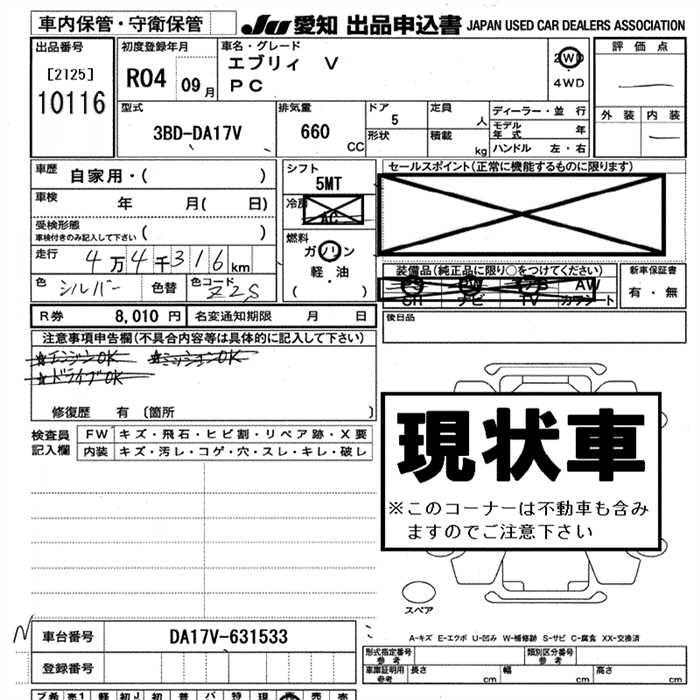 車内保管・守衛保管 JU 愛知 出品申込書 JAPAN USED CAR DEALERS ASSOCIATION
出品番号 [2125] 10116
初度登録年月 R04 09月
車名・グレード エブリィ V
PC
2WD
4WD
評価点
外装 内装
型式 3BD-DA17V
排気量 660 CC
ドア 5
形状
定員 人
積載 kg
ディーラー・並行
モデル年式 年
ハンドル 左・右
車歴 自家用・( )
車検 年 月( 日)
受検形態
車検付きのみ記入して下さい ( )
走行 4万4千316km
色 シルバー 色替 色コード Z2S
シフト 5MT
冷房 AC
燃料 ガソリン
軽・油
( )
セールスポイント(正常に機能するものに限ります)
装備品(純正品に限り○をつけてください)
SR ナビ TV カワシート
PS PW AB AW
新車保証書
有・無
R券 8,010円 名変通知期限 月 日
後日品
注意事項申告欄(不具合内容等は具体的に記入して下さい)
★エンジンOK ★ミッションOK
★ドライブOK
修復歴 有 〔箇所 〕
検査員記入欄
FW キズ・飛石・ヒビ割・リペア跡・X要
内装 キズ・汚レ・コゲ・穴・スレ・キレ・破レ
現状車
※このコーナーは不動車も含み
ますのでご注意下さい
スペア
A-キズ E-エクボ U-凹み W-補修跡 S-サビ C-腐食 XX-交換済
N
車台番号 DA17V-631533
登録番号
形式指定番号 参考
類別区分番号 参考
車庫証明用 参考 長さ cm 幅 cm 高さ cm